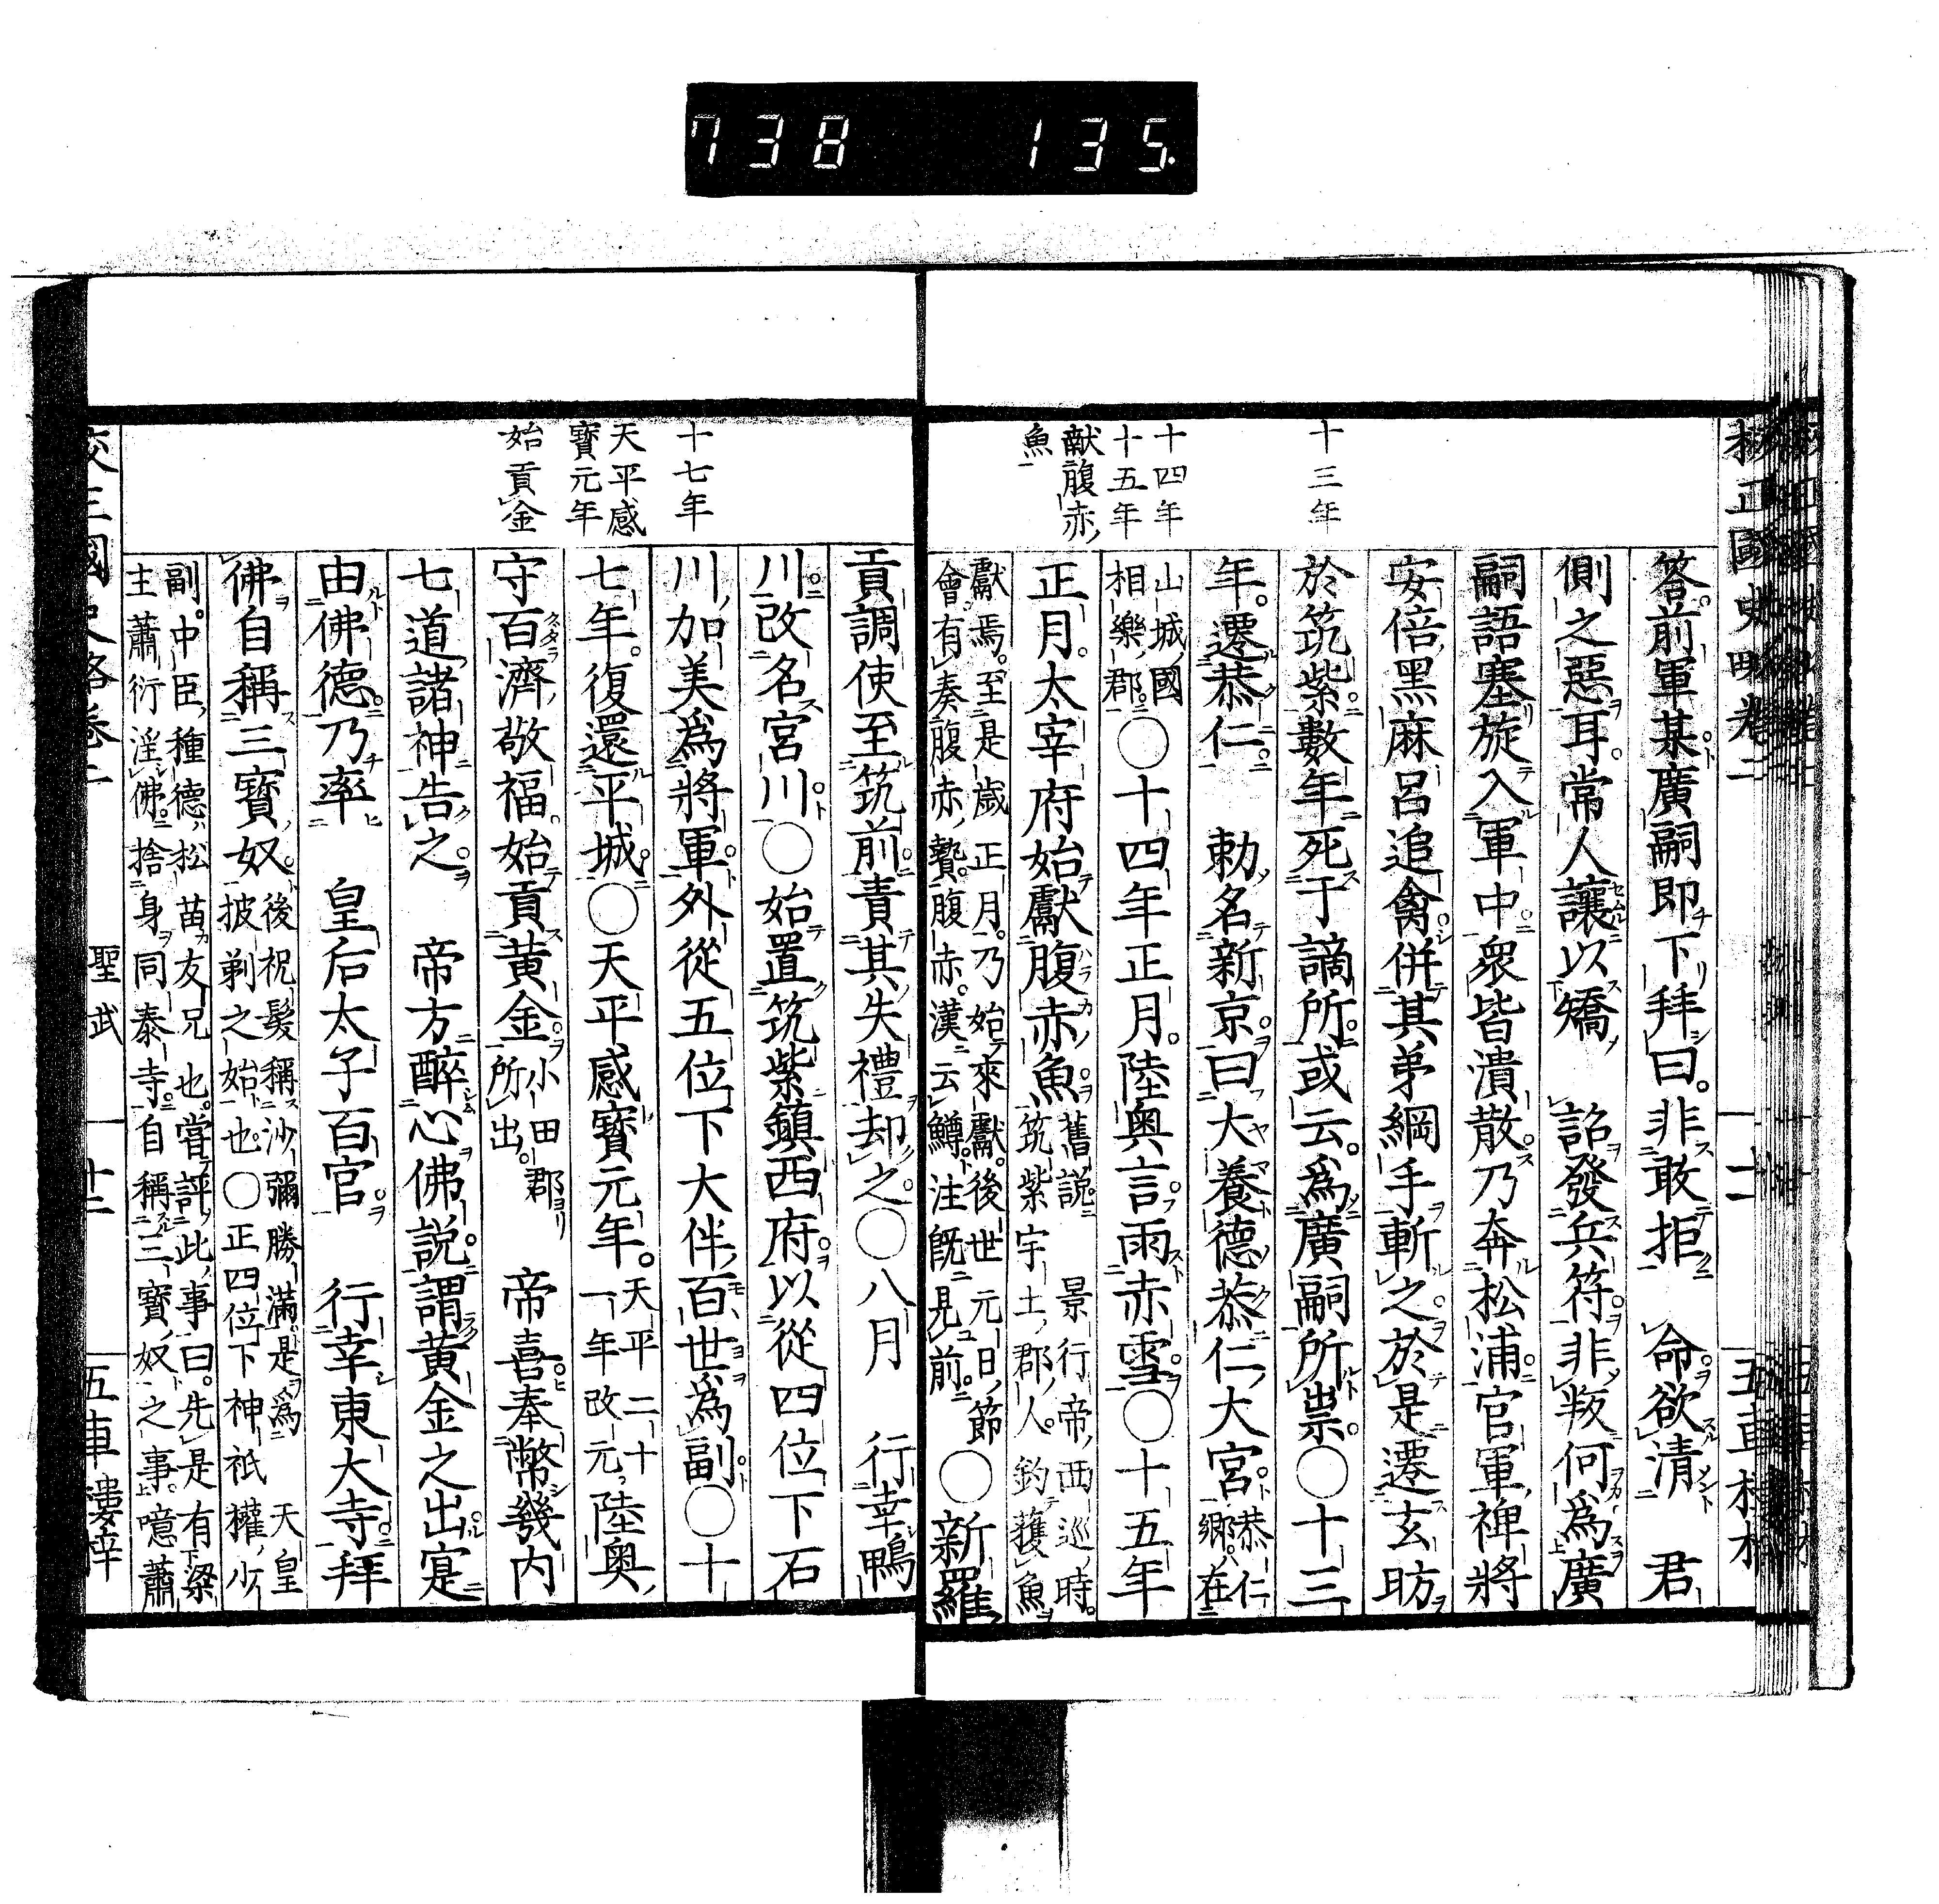 738 135.
校正國史略卷二
十二
五車樓梓
十三年
十四年
十五年
献腹赤
魚
答前軍某廣嗣即下拜曰非敢拒 命欲清 君
側之惡耳常人讓以矯 詔發兵符非叛何爲廣
嗣語塞旋入軍中衆皆潰散乃奔松浦官軍裨將
安倍黑麻呂追禽併其弟綱手斬之於是遷玄昉
於筑紫數年死于謫所或云爲廣嗣所祟○十三
年遷恭仁 勅名新京曰大養德恭仁大宮恭仁郷在
山城國相樂郡○十四年正月陸奥言雨赤雪○十五年
正月太宰府始獻腹赤魚舊説 景行帝西巡時筑紫宇土郡人釣獲魚
獻焉至是歳正月乃始來獻後世元日節會有奏腹赤贄腹赤漢云鱒注既見前○新羅
十七年
天平感
寶元年
始貢金
貢調使至筑前責其失禮却之○八月 行幸鴨
川改名宮川○始置筑紫鎭西府以從四位下石
川加美爲將軍外從五位下大伴百世爲副○十
七年復還平城○天平感寶元年天平二十一年改元陸奥
守百濟敬福始貢黄金小田郡所出 帝喜奉幣畿内
七道諸神告之 帝方醉心佛説謂黄金之出寔
由佛德乃率 皇后太子百官 行幸東大寺拜
佛自稱三寶奴後祝髮稱沙彌勝滿是爲 天皇披剃之始也○正四位下神祇權少
副中臣種德松苗友兄也嘗評此事曰先是有梁主蕭衍淫佛捨身同泰寺自稱三寶奴之事噫蕭
校正國史略卷二
聖武
十二
五車樓梓